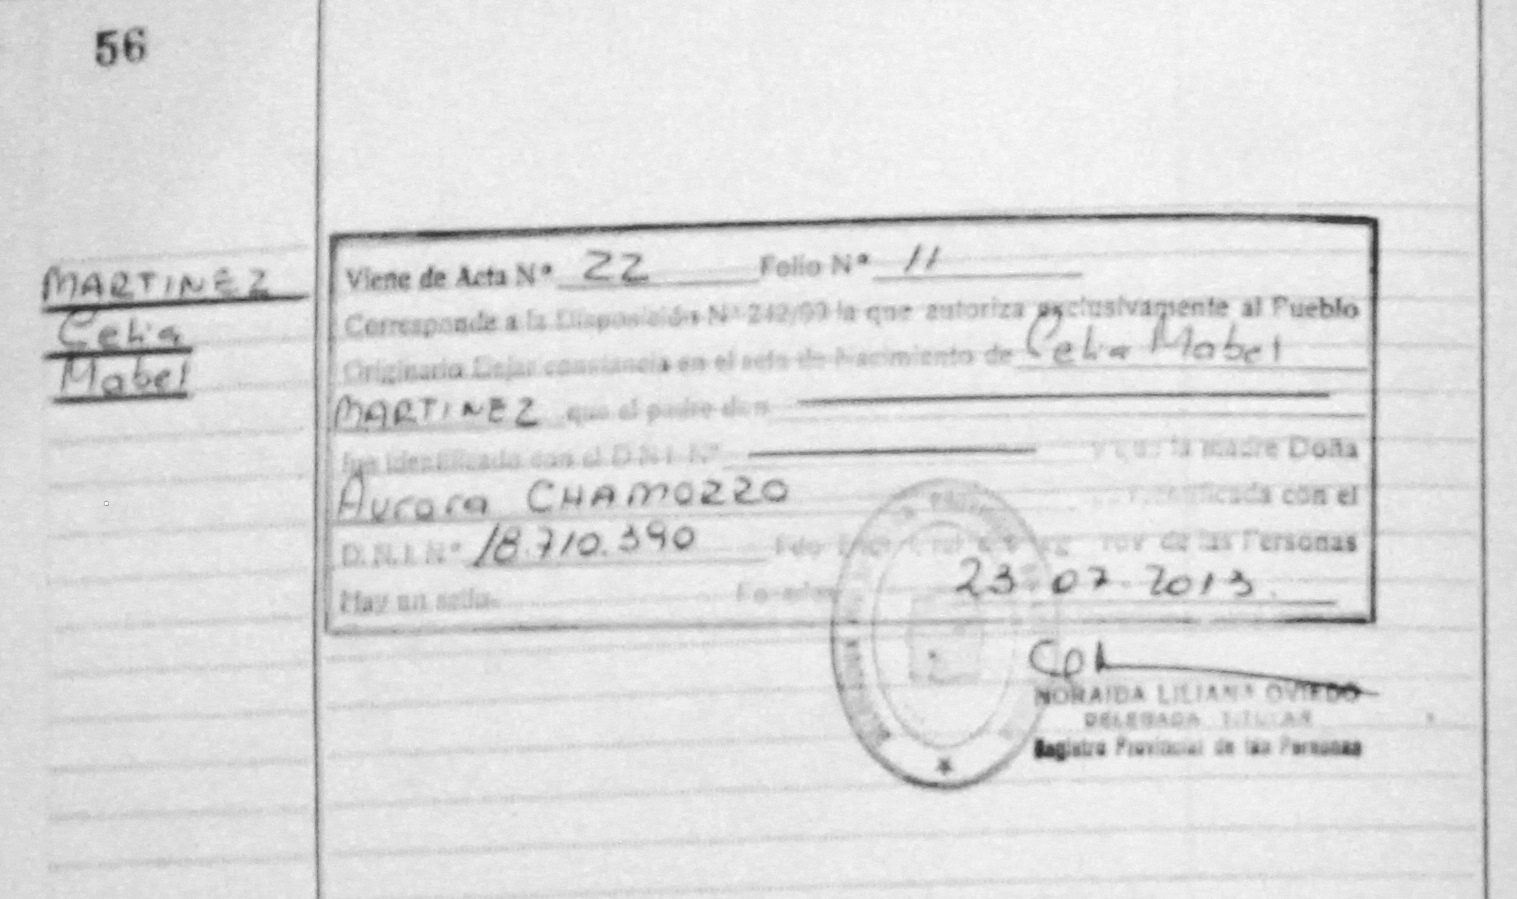 56
MARTINEZ
Celia
Mabel
Viene de Acta Nº 22 Folio Nº 11
Corresponde a la Disposición Nº 242/99 la que autoriza exclusivamente al Pueblo
Originario Dejar constancia en el acta de Nacimiento de Celia Mabel
MARTINEZ que el padre don
fue identificado con el D.N.I. Nº y que la madre Doña
Aurora CHAMOZZO identificada con el
D.N.I. Nº 18.710.390 de las Personas
Hay un sello. 23.07.2013.
NORAIDA LILIANA OVIEDO
DELEGADA TITULAR
Registro Provincial de las Personas